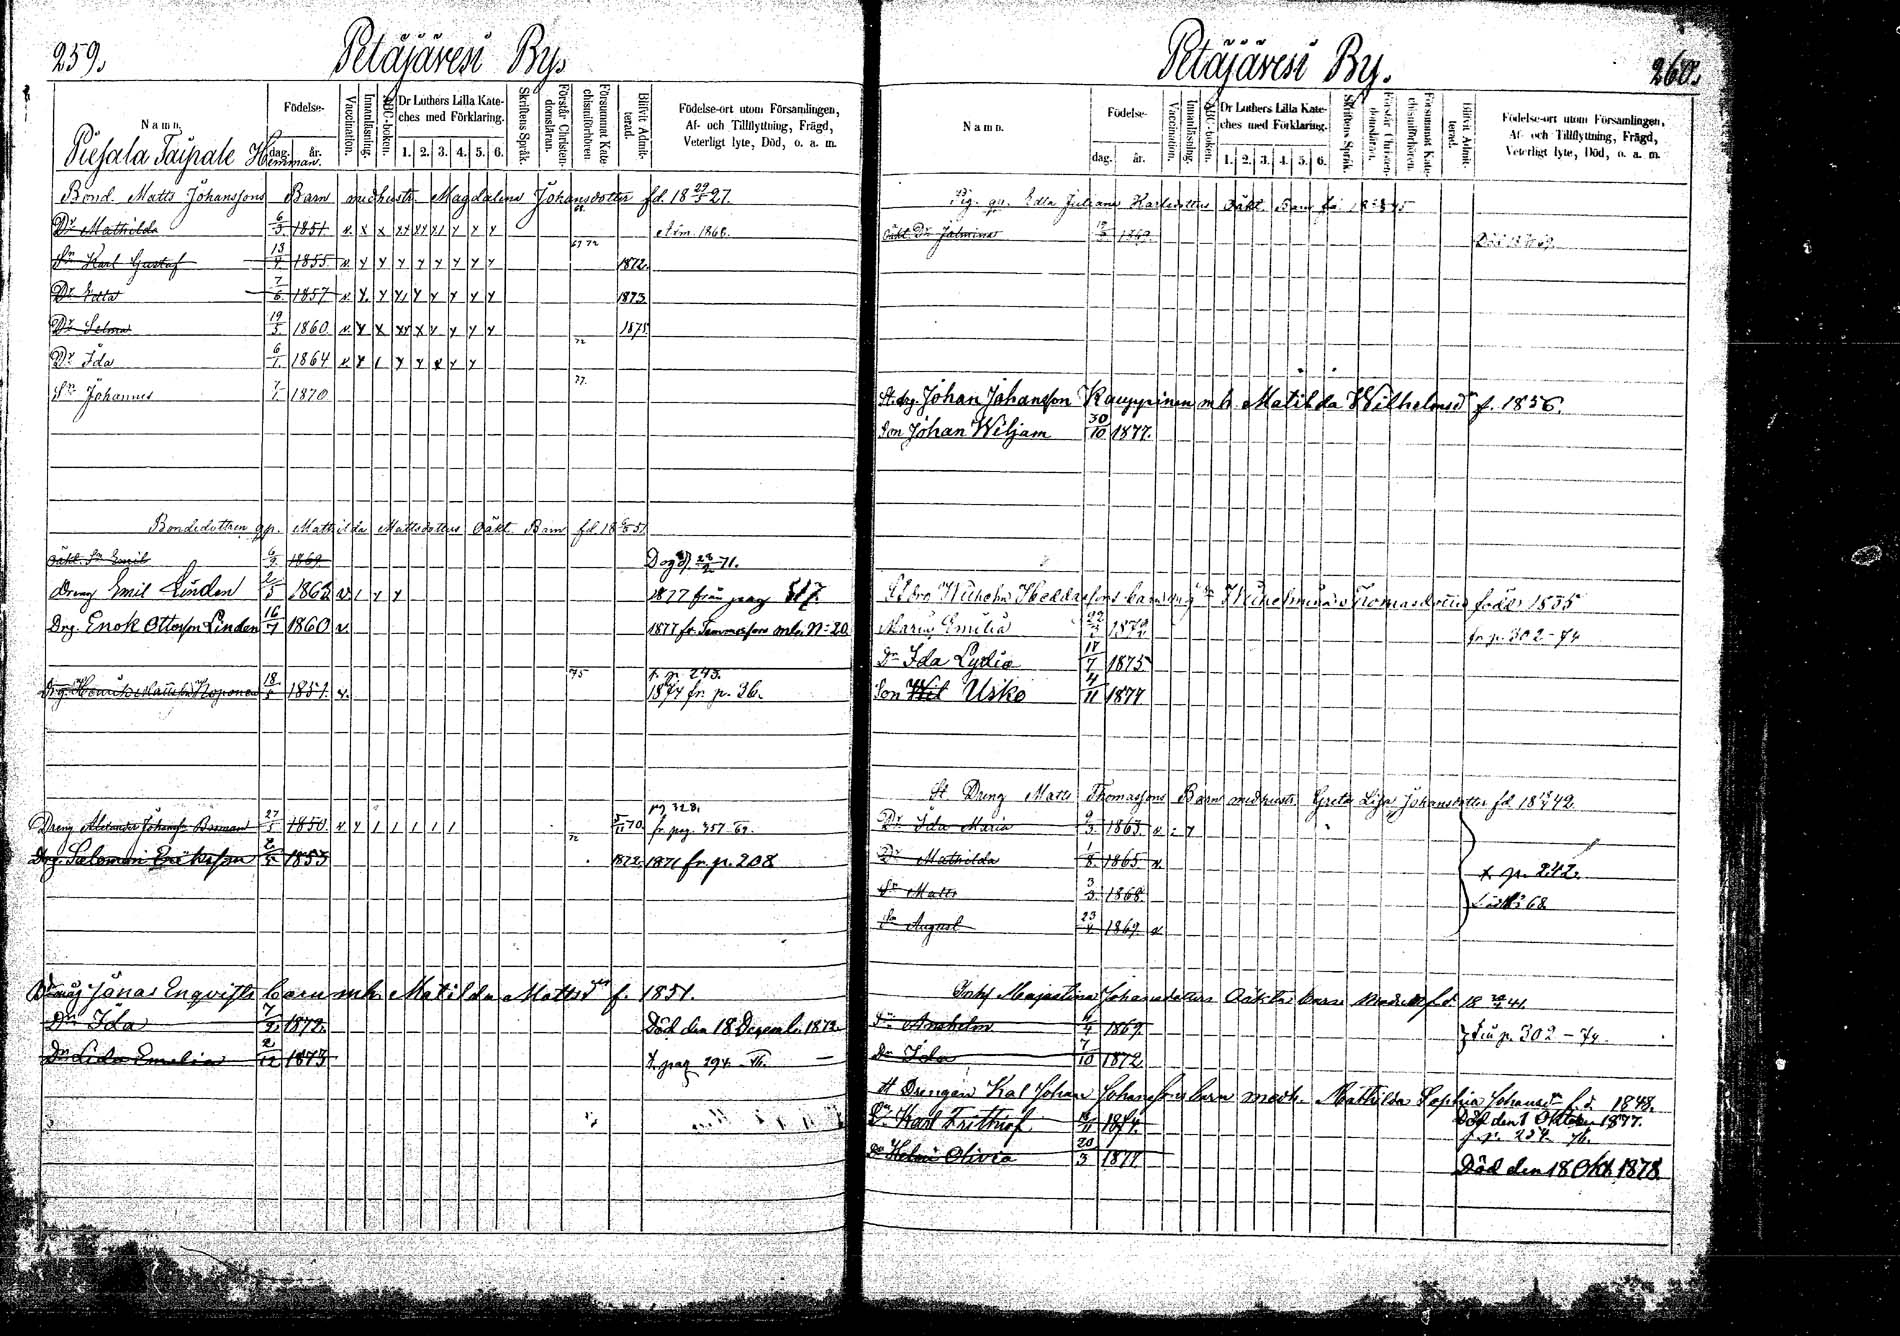 259.
Petäjävesi By.
Namn.
Födelse-
dag. år.
Vaccination.
Innanläsning.
ABC-boken.
Dr Luthers Lilla Kate-
ches med Förklaring.
1. 2. 3. 4. 5. 6.
Skriftens Språk.
Förstår Christen-
domsläran.
Försummat Kate-
chismiförhören.
Blifvit Admit-
terad.
Födelse-ort utom Församlingen,
Af- och Tillflyttning, Frägd,
Veterligt lyte, Död, o. a. m.
Piesala Taipale Hemman.
Bond. Matts Johanssons Barn med hustr. Magdalena Johansdotter fd. 18 29/5 27.
Dr Mathilda 6/3 1851 v. x x xx xx x1 y y y
Sn Karl Gustaf 13/4 1855 v. y y y y y y y y 69 72 1872.
Dr Edla 7/6 1857 v y. y y1 y y y y y 1873
Dr Selma 19/5 1860 v. y x xx x y y y y 1875.
Dr Ida 6/1 1864 v. y 1 y y x y y 72
Sn Johannes 7/1 1870 77.
Bondedottren gp. Mathilda Mattsdotters Oäkt. Barn fd. 18 6/3 51.
Oäkt. Sn Emil 6/9 1869 Dog d. 28/2 71.
Dreng Emil Linden 2/5 1862 v 1 y y 1877 från pag 517.
Drg. Enok Ottosson Linden 16/7 1860 v. 1877 fr. Tammerfors mbr. N=20
Drg. Henrik Koponen 18/5 1851 v. 75 t. p. 243.
1874 fr. p. 36.
Dreng Alexander Johansson Boman 27/5 1850 v y 1 1 1 1 1 5/11 70. pg 328.
fr. pag. 357-69.
Drg. Salomon Eriksson 1853 72 1872. 1871 fr. p. 208
Jonas Enqvists barn m.h. Matilda Matts dr f. 1851.
Dr Ida 7/2 1872. Död den 18 Decemb. 1872.
Dr Lida Emelia 2/12 1873 t. pag 294
260.
Petäjävesi By.
Namn.
Födelse-
dag. år.
Vaccination.
Innanläsning.
ABC-boken.
Dr Luthers Lilla Kate-
ches med Förklaring.
1. 2. 3. 4. 5. 6.
Skriftens Språk.
Förstår Christen-
domsläran.
Försummat Kate-
chismiförhören.
Blifvit Admit-
terad.
Födelse-ort utom Församlingen,
Af- och Tillflyttning, Frägd,
Veterligt lyte, Död, o. a. m.
Pig. qv. Edla Juliana Karlsdotters Oäkt. Barn
Oäkt. Dr Jalmina 1869.
St. drg. Johan Johansson Kauppinen m.h. Matilda Wilhelmsdr f. 1856.
Son Johan Wiljam 30/10 1877.
Wilhelm Heddassons barn Wilhelmina Thomasdotter född 1835
Maria Emilia 22/2 1872 fr. p. 302-74
Dr Ida Lydia 17/7 1875
Son Wil Usko 4/11 1877
St Dreng Matts Thomassons Barn med hustr. Greta Lisa Johansdotter fd 18 42.
Dr Ida Maria 9/3 1863. v - y
Dr Mathilda 1/8 1865 v t. p. 242.
Sn Matts 3/3 1868
Sn August 23/4 1869. v
Inh. Majastina Johansdotters Oäkta barn 18 41.
Anshelm 4/4 1869 fr. p. 302-74
Dr Ida 7/10 1872
St Drengen Kal Johan Johanssons barn med h. Mathilda Sophia Johansdr f.d. 1848.
Sn Karl Frithiof 16/11 1874. Död den 1 Oktober 1877.
Dr Helmi Olivia 20/3 1877 Död den 18 Okt. 1878.